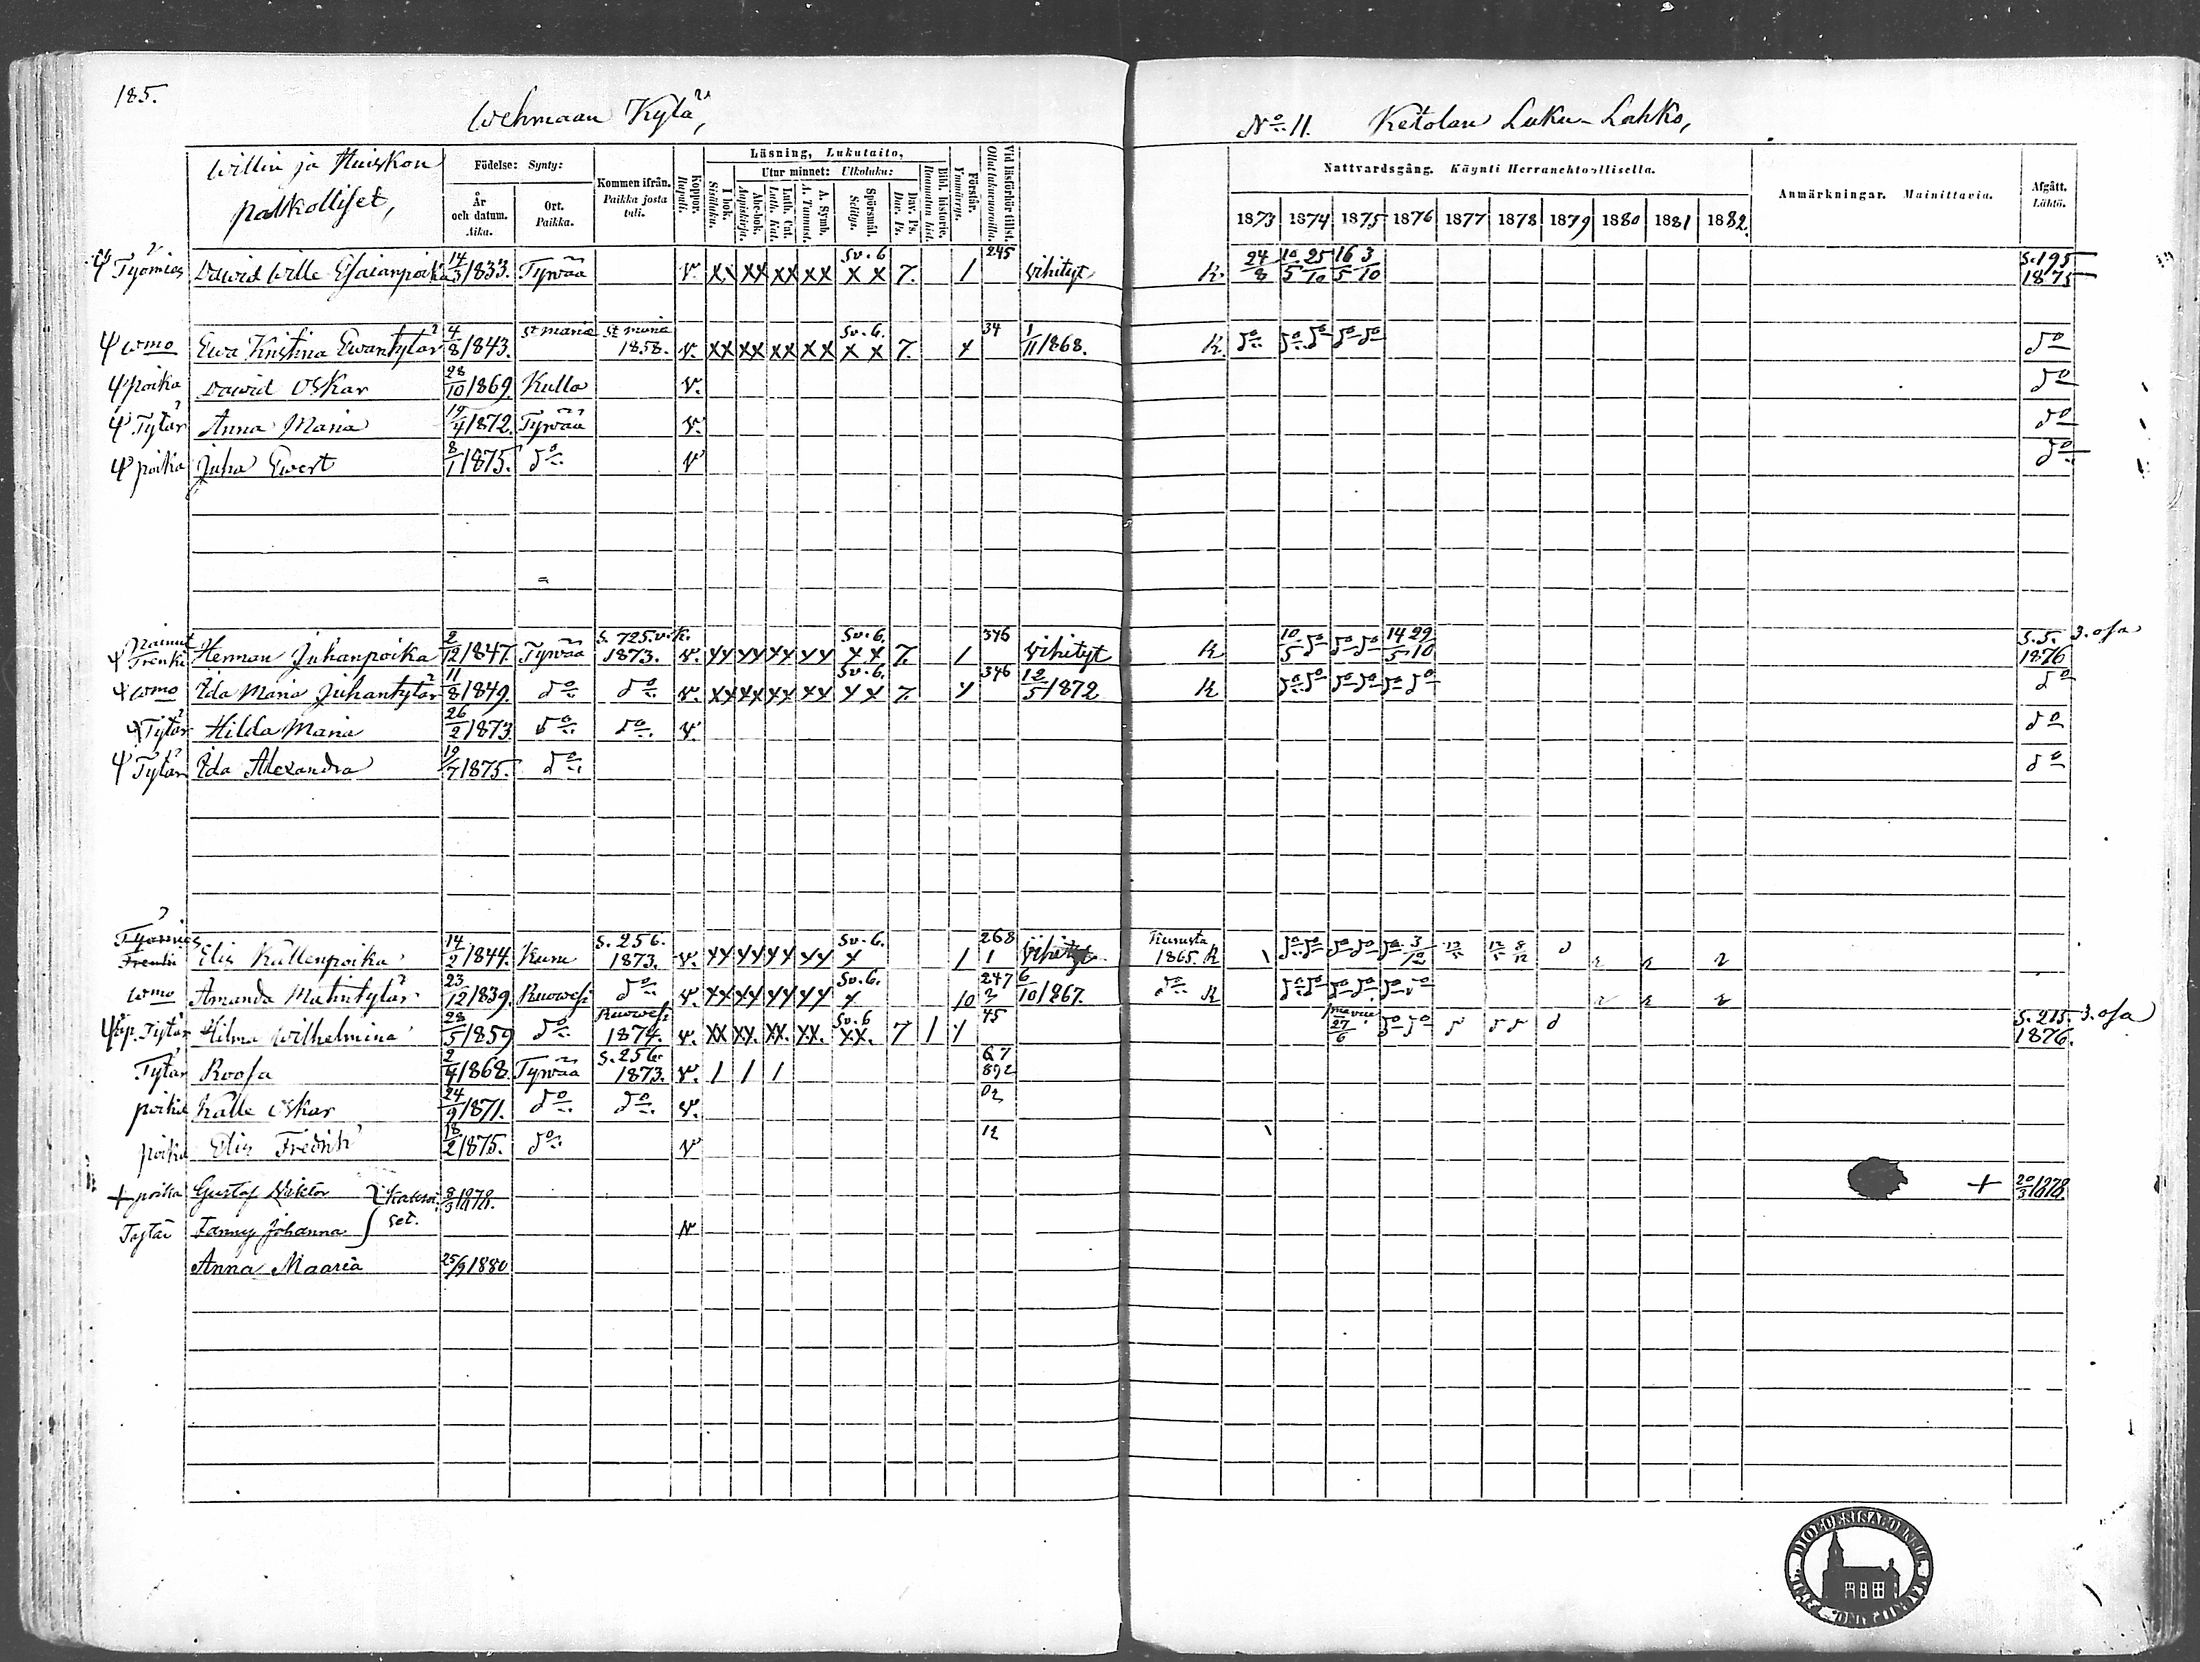 185.
Wehmaan Kylä,
No 11. Ketolan Luku-Lahko,
Willin ja Huiskon palkolliset,
Födelse: Synty:
År och datum. Aika.
Ort. Paikka.
Kommen ifrån. Paikka josta tuli.
Koppor. Rupuli.
Läsning, Lukutaito,
I bok. Sisäluku.
Utur minnet: Ulkoluku:
Abc-bok. Aapiskirja.
Luth. Cat. Luth. Kat.
A. Symb. A. Tunnust.
Spörsmål. Selitys.
Dav. Ps. Dav. Ps.
Bibl. historie. Raamatun hist.
Förstår. Ymmärrys.
Vid läsförhör tillst. Ollut lukuvuorolla.
Nattvardsgång. Käynti Herranehtoollisella.
1873 1874 1875 1876 1877 1878 1879 1880 1881 1882.
Anmärkningar. Mainittavia.
Afgått. Lähtö.
Työmies Dawid Wille Esaianpoika 14/3 1833. Tyrwää v. xx xx xx xx Sv. 6 xx 7. 1 245 wihityt K. 24/8 10/5 25/10 16/5 3/10 S. 195 1875
wmo Ewa Kristina Ewantytär 4/8 1843. St Maria St Maria 1858. v. xx xx xx xx Sv. 6. xx 7. 34 1/11 1868. K. do do do do do do
poika Dawid Oskar 28/10 1869. Kulla v. do
Tytär Anna Maria 19/4 1872. Tyrwää v. do
poika Juha Ewert 8/1 1875. do v do
Nainut Trenki Herman Juhanpoika 2/12 1847. Tyrwää S. 725. v.k. 1873. v. xx xx xx xx Sv. 6. xx 7. 1 346 wihityt K 10/5 do do do 14/5 29/10 S. 5. 3. osa 1876
wmo Ida Maria Juhantytär 11/8 1849. do do v. xx xx xx xx Sv. 6. xx 7. 346 12/5 1872 K do do do do do do do
Tytär Hilda Maria 26/2 1873. do do v. do
Tytär Ida Alexandra 19/7 1875. do do
Työmies Trenki Elis Kallenpoika 14/2 1844. Kuru S. 256. 1873. v. xx xx xx xx Sv. 6. x 1 268 wihityt Kurusta 1865. K do do do do do 3/12
wmo Amanda Matintytär 23/12 1839. Ruowesi do v. xx xx xx xx Sv. 6. x 10 247 6/10 1867. do K do do do do do do
äp. Tytär Hilma Wilhelmina 28/5 1859 do Ruowesi 1874. v. xx xx. xx. xx. Sv. 6 xx. 7 1 45 27/6 do do S. 215. 3. osa 1876.
Tytär Roosa 2/4 1868. Tyrwää S. 256. 1873. v. 1 1 1 67
poika Kalle Oskar 24/9 1871. do do v.
poika Elis Fredrik 18/2 1875. do v 12
+ poika Gustaf Wiktor } kaksoi- 8/3 1878. + 20/3 1878.
Tytär Fanny Johanna } set. v
Anna Maaria 25/9 1880